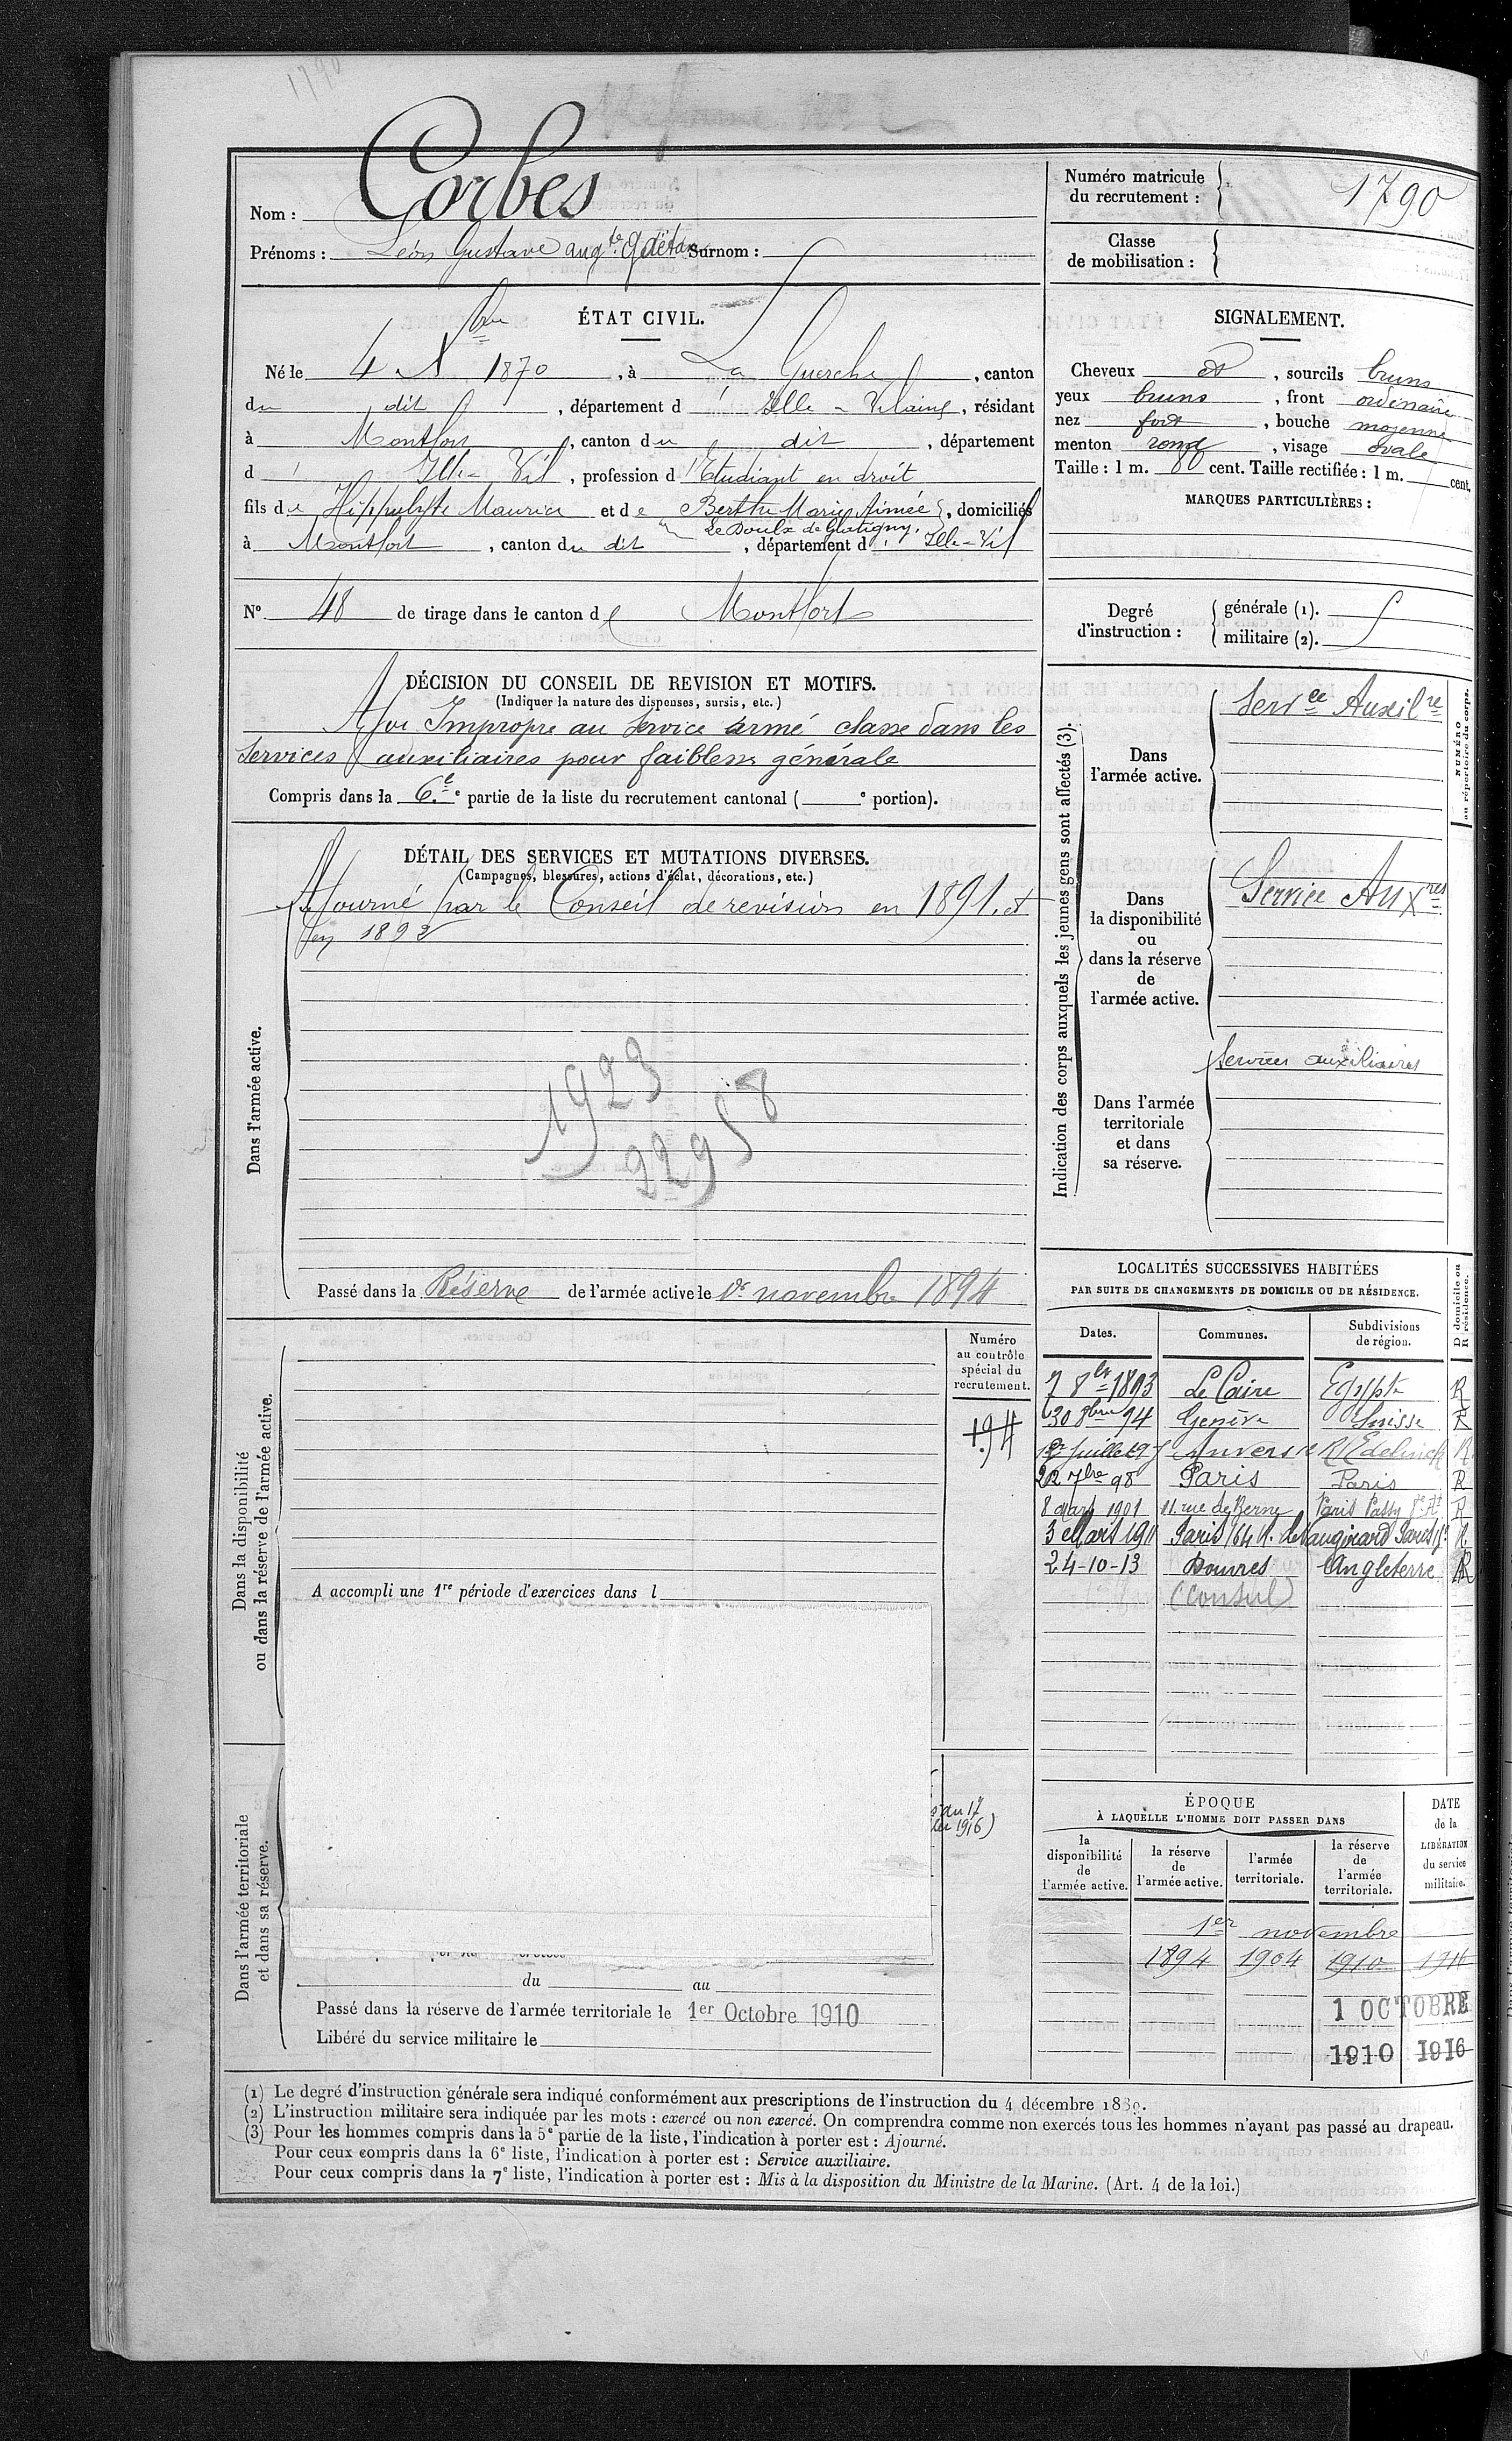 1790
Réformé No 2
Nom : Corbes
Prénoms : Léon Gustave Aug.te Gaëtan Surnom :
Numéro matricule
du recrutement : 1790
Classe
de mobilisation :
ÉTAT CIVIL.
Né le 4 Xbre 1870, à La Guerche, canton
du dit, département d'Ille-Vilaine, résidant
à Montfort, canton du dit, département
d'Ille-Vil, profession d'Etudiant en droit
fils de Hippolyte Maurice et de Berthe Marie Aimée, domiciliés
Le Doulx de Glatigny
à Montfort, canton du dit, département d'Ille-Vil
SIGNALEMENT.
Cheveux et, sourcils bruns
yeux bruns, front ordinaire
nez fort, bouche moyenne
menton rond, visage ovale
Taille : 1 m. cent. Taille rectifiée : 1 m. cent.
MARQUES PARTICULIÈRES :
N° 48 de tirage dans le canton de Montfort
Degré
d'instruction :
générale (1).
militaire (2).
DÉCISION DU CONSEIL DE REVISION ET MOTIFS.
(Indiquer la nature des dispenses, sursis, etc.)
Impropre au service armé classé dans les
services auxiliaires pour faiblesse générale
Compris dans la 6.e e partie de la liste du recrutement cantonal ( e portion).
DÉTAIL DES SERVICES ET MUTATIONS DIVERSES.
(Campagnes, blessures, actions d'éclat, décorations, etc.)
Ajourné par le Conseil de revision en 1891 et
en 1892
Dans l'armée active.
1923
22958
Passé dans la Réserve de l'armée active le 1er novembre 1894
Indication des corps auxquels les jeunes gens sont affectés (3).
Dans
l'armée active.
Servce Auxilre
NUMÉRO
au répertoire du corps.
Dans
la disponibilité
ou
dans la réserve
de
l'armée active.
Service Auxres
Dans l'armée
territoriale
et dans
sa réserve.
Services auxiliaires
Dans la disponibilité
ou dans la réserve de l'armée active.
Numéro
au contrôle
spécial du
recrutement.
194
A accompli une 1re période d'exercices dans l
LOCALITÉS SUCCESSIVES HABITÉES
PAR SUITE DE CHANGEMENTS DE DOMICILE OU DE RÉSIDENCE.
Dates. Communes. Subdivisions
de région.
D domicile ou
R résidence.
7 8bre 1893 Le Caire Egypte R
30 8bre 94 Genève Suisse R
1er Juillet 97 Anvers R. Edelinck R
22 7bre 98 Paris Paris R
8 1901 11. rue de Berne Paris R
3 Mars 1911 Paris 164 R. de Vaugirard Paris R
24-10-13 Douvres Angleterre R
(Consul)
Dans l'armée territoriale
et dans sa réserve.
du 17
1916)
du au
Passé dans la réserve de l'armée territoriale le 1er Octobre 1910
Libéré du service militaire le
ÉPOQUE
À LAQUELLE L'HOMME DOIT PASSER DANS
DATE
de la
LIBÉRATION
du service
militaire.
la
disponibilité
de
l'armée active.
la réserve
de
l'armée active.
l'armée
territoriale.
la réserve
de
l'armée
territoriale.
1er novembre
1894 1904 1910 1916
1 OCTOBRE
1910 1916
(1) Le degré d'instruction générale sera indiqué conformément aux prescriptions de l'instruction du 4 décembre 1889.
(2) L'instruction militaire sera indiquée par les mots : exercé ou non exercé. On comprendra comme non exercés tous les hommes n'ayant pas passé au drapeau.
(3) Pour les hommes compris dans la 5e partie de la liste, l'indication à porter est : Ajourné.
Pour ceux compris dans la 6e liste, l'indication à porter est : Service auxiliaire.
Pour ceux compris dans la 7e liste, l'indication à porter est : Mis à la disposition du Ministre de la Marine. (Art. 4 de la loi.)